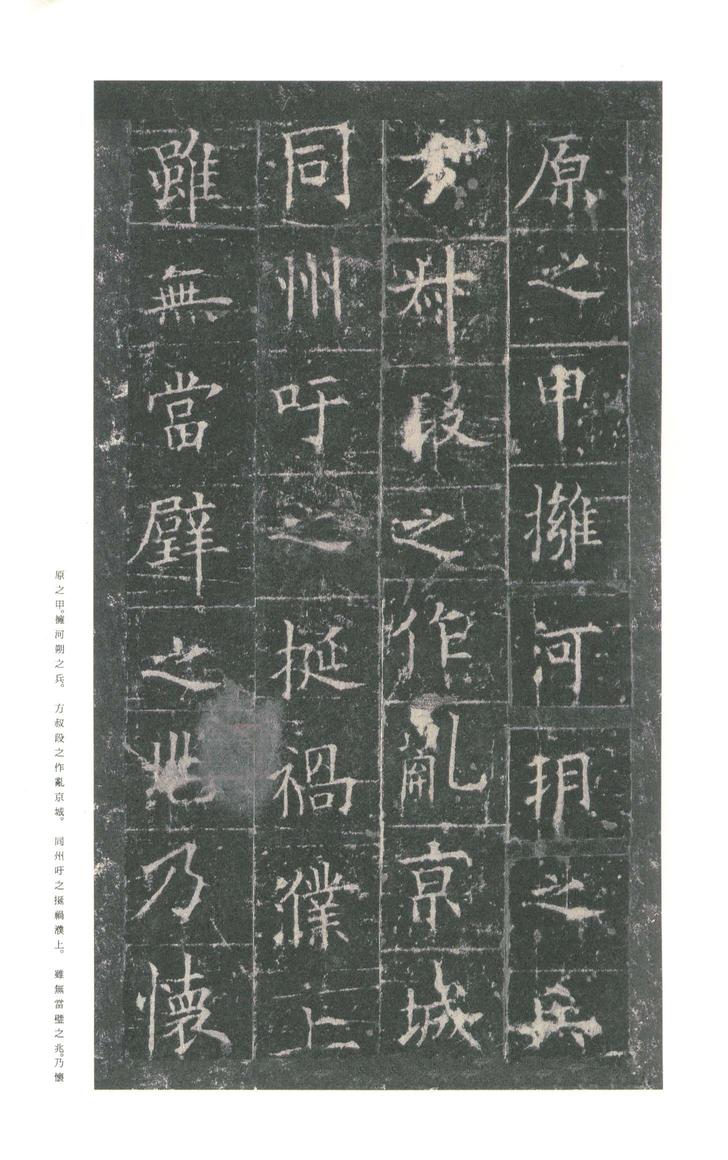 原之甲擁河朔之兵
方叔段之作亂京城
同州吁之挻禍濮上
雖無當璧之兆乃懷
原之甲。擁河朔之兵。　方叔段之作亂京城。　同州吁之挻禍濮上。　雖無當璧之兆。乃懷